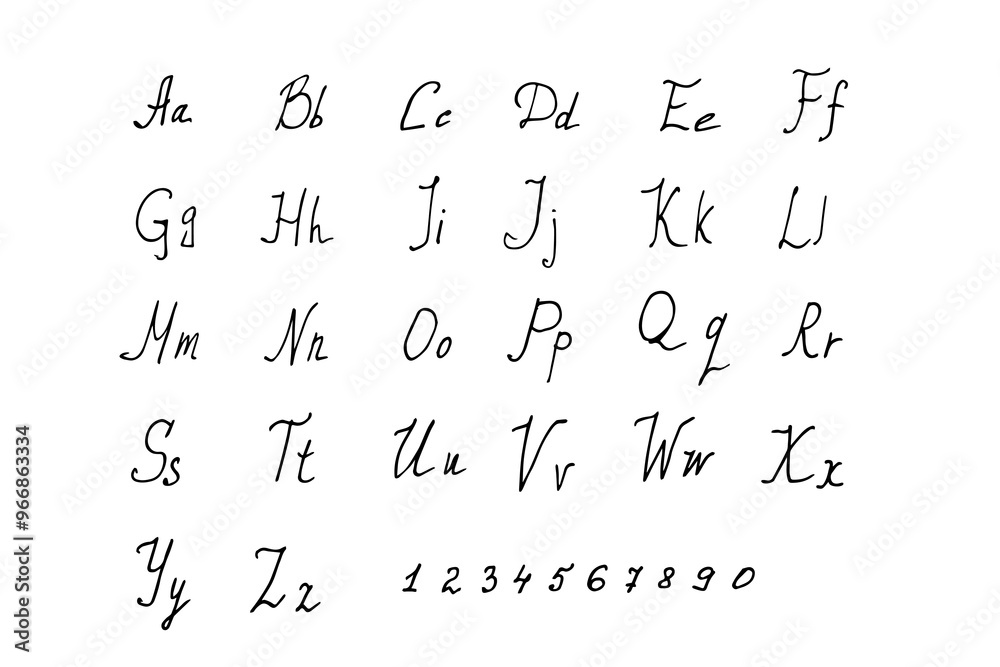 Aa Bb Cc Dd Ee Ff
Gg Hh Ii Jj Kk Ll
Mm Nn Oo Pp Qq Rr
Ss Tt Uu Vv Ww Xx
Yy Zz 1 2 3 4 5 6 7 8 9 0
Adobe Stock | #966863334